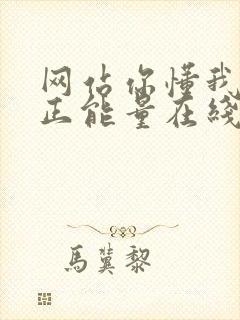 网估你懂我
正能量在线
馬冀黎